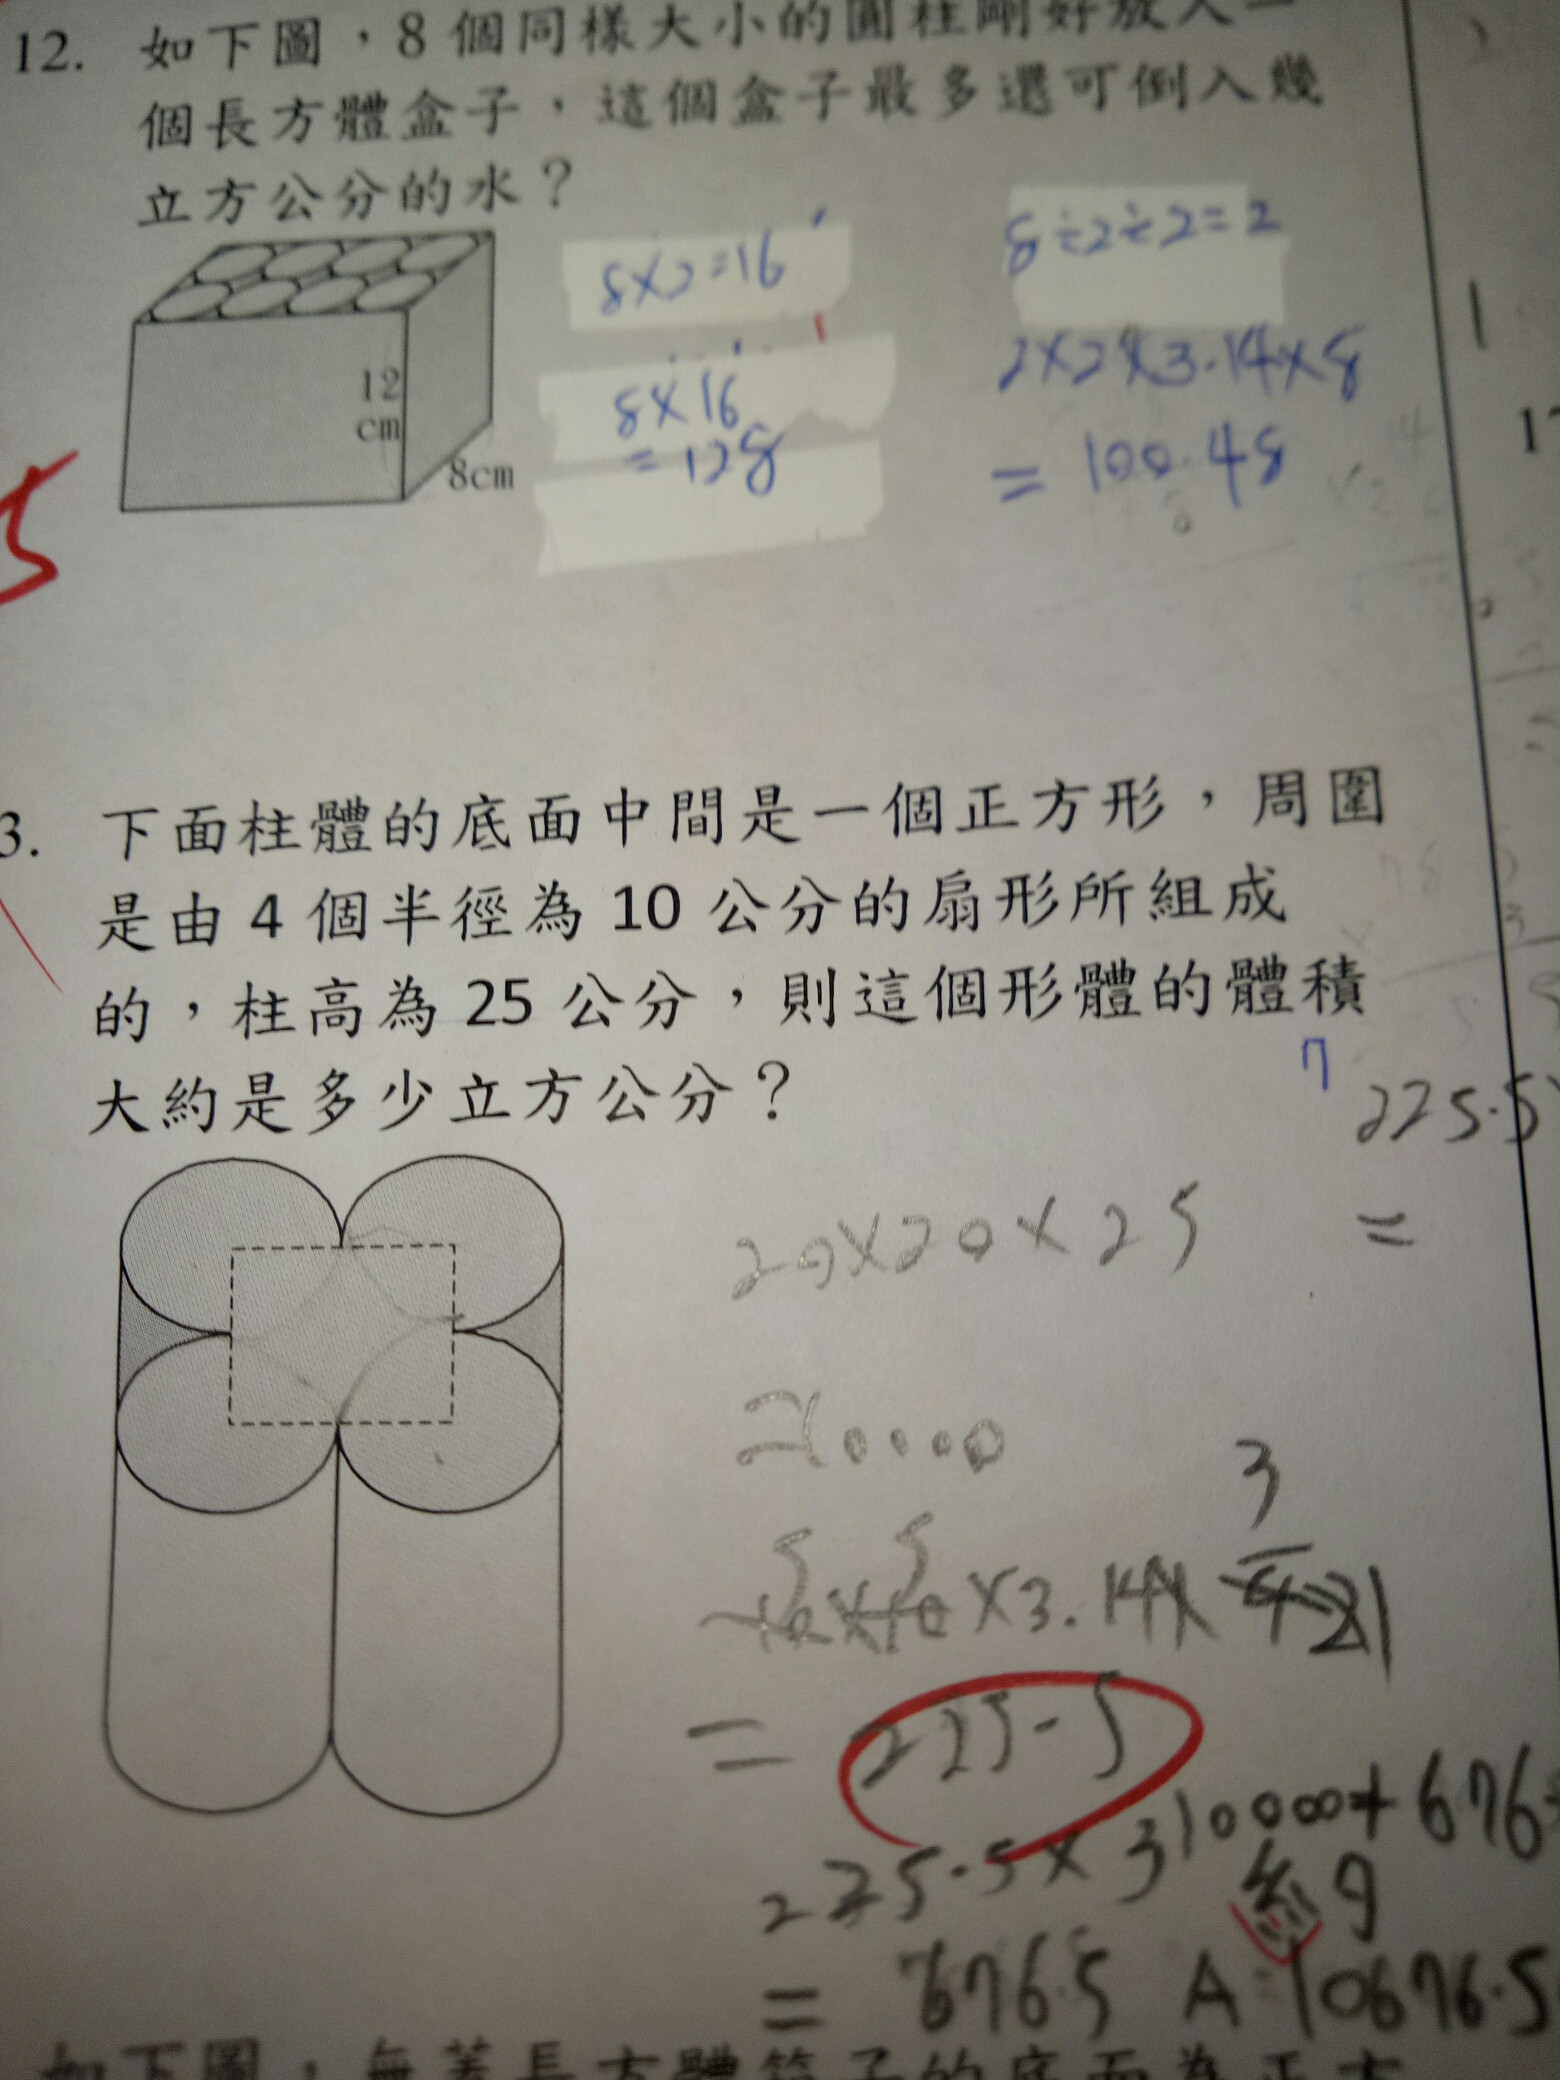 12. 如下圖，8個同樣大小的圓柱剛好放入一
個長方體盒子，這個盒子最多還可倒入幾
立方公分的水？
8×2=16
8÷2÷2=2
8×16
=128
2×2×3.14×8
=100.48
12
cm
8cm
5
3. 下面柱體的底面中間是一個正方形，周圍
是由4個半徑為10公分的扇形所組成
的，柱高為25公分，則這個形體的體積
大約是多少立方公分？
7
225.5
20×20×25
=
×3.14
3
=225.5
225.5×3
10000+676
9
=676.5
A 10676.5
如下圖，無蓋長方體箱子的底面為正方